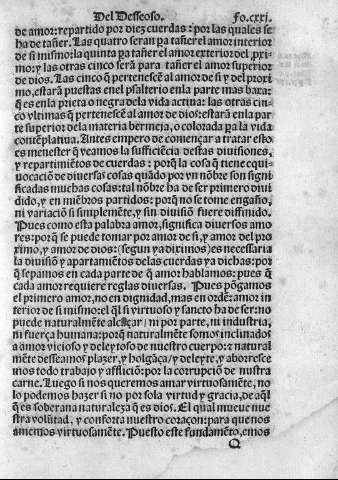 Del Desseoso. Fo.cxxj.
de amor: repartido por diez cuerdas: por las quales se
ha de tañer. Las quatro seran pa tañer el amor interior
de si mismo: la quinta pa tañer el amor exterior del pxi-
mo: y las otras cinco serã para tañer el amor superior
de dios. Las cinco q̃ pertenescẽ al amor de si y del pxi-
mo, estarã puestas enel psalterio enla parte mas baxa:
q̃ es enla prieta o negra dela vida actiua: las otras cin-
co vltimas q̃ pertenescẽ al amor de dios: estarã enla par
te superior dela materia bermeja, o colorada pa la vida
contẽplatiua. Antes empero de començar a tratar esto:
es menester q̃ veamos la sufficiẽcia destas diuisiones,
y repartimiẽtos de cuerdas: porq̃ la cosa q̃ tiene equi-
uocaciõ de diuersas cosas quãdo por vn nõbre son signi-
ficadas muchas cosas: tal nõbre ha de ser primero diui
dido, y en miẽbros partidos: porq̃ no se tome engaño,
ni variaciõ si simplemẽte, y sin diuisiõ fuere diffinido.
Pues como esta palabra amor, significa diuersos amo
res: porq̃ se puede tomar por amor de si, y amor del pro
ximo, y amor de dios: (segun ya diximos) es necessaria
la diuisiõ y apartamiẽtos delas cuerdas ya dichas: por
q̃ sepamos en cada parte de q̃ amor hablamos: pues q̃
cada amor requiere reglas diuersas. Pues põgamos
el primero amor, no en dignidad, mas en ordẽ: amor in
terior de si mismo: el q̃l si virtuoso y sancto ha de ser: no
puede naturalmẽte alcãçar ni por parte, ni industria,
ni fuerça humana: porq̃ naturalmẽte somos inclinados
a amor vicioso y deleytoso de nuestro cuerpo: ⁊ natural
mẽte desseamos plazer, y holgãça / y deleyte, y aborresce
mos todo trabajo y afflictiõ: por la corrupciõ de nustra
carne. Luego si nos queremos amar virtuosamẽte, no
lo podemos hazer si no por sola virtud y gracia, de aq̃l
q̃ es soberana naturaleza q̃ es dios. El qual mueue nue
stra volũtad, y conforta nuestro coraçon: para que nos
amemos virtuosamẽte. Puesto este fundamẽto, emos
Q